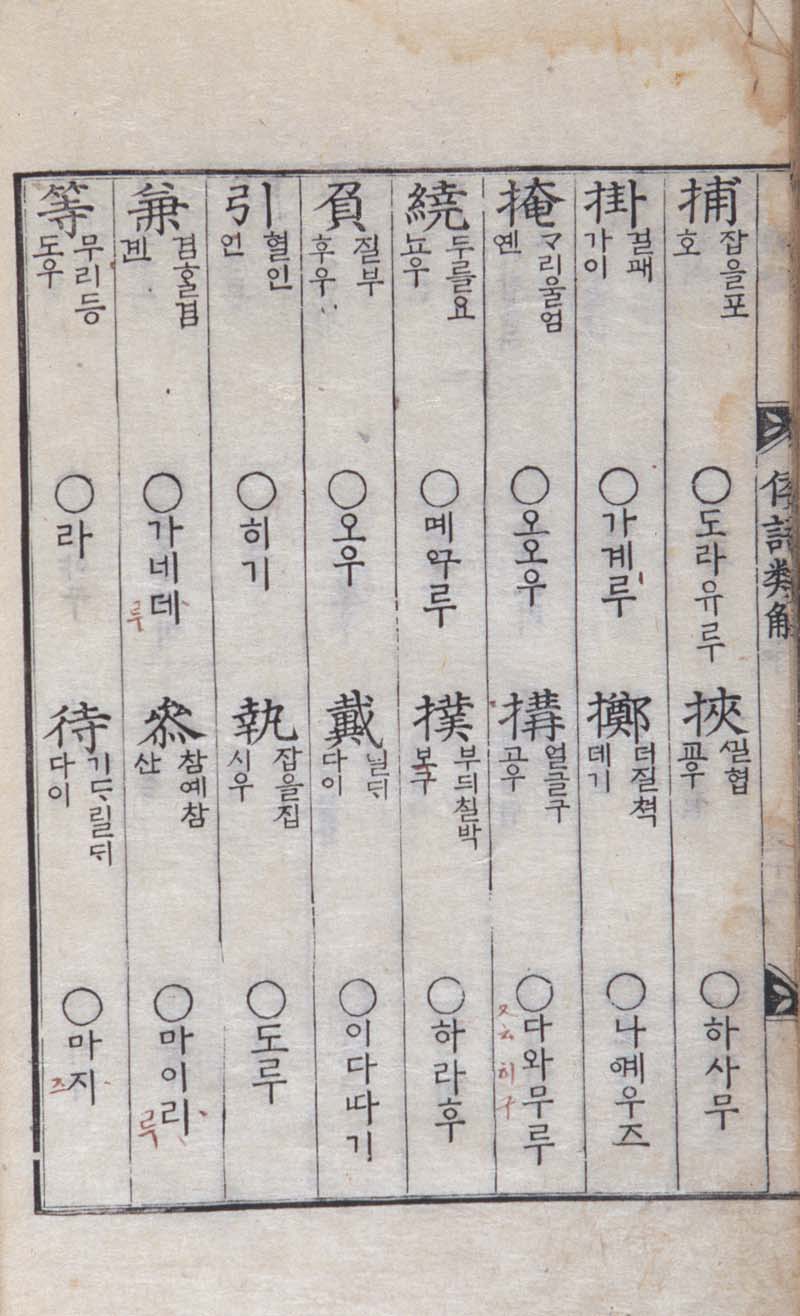 倭語類解
捕 잡을포 호 ○도라유루 挾 ᄭᅵᆯ협 교우 ○하사무
掛 걸괘 가이 ○가계루 擲 더질쳑 데기 ○나예우즈
掩 ᄀᆞ리울엄 옌 ○오오우 搆 얼글구 고우 ○다와무루 又云 히구
繞 두를요 뇨우 ○몌ᅌ구루 撲 부듸칠박 보구 ○하라후
負 질부 후우 ○오우 戴 닐ᄃᆡ 다이 ○이다따기
引 혈인 언 ○히기 執 잡을집 시우 ○도루
兼 겸ᄒᆞᆯ겸 곈 ○가네데 루 叅 참예참 산 ○마이리 루
等 무리등 도우 ○라 待 기ᄃᆞ릴ᄃᆡ 다이 ○마지 즈